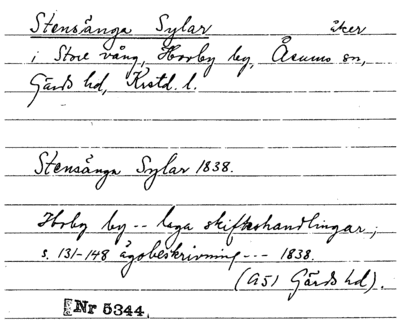 Stensånga Sylar åker
i Store vång, Horby by, Åsums sn,
Gärds hd, Krstd. l.
Stensånga Sylar 1838.
Horby by -- laga skifteshandlingar;
s. 131-148 ägobeskrivning --- 1838.
(A51 Gärds hd).
Nr 5344.